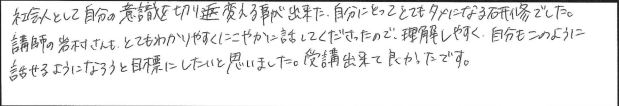 社会人として自分の意識を切り返変える事が出来た、自分にとってとてもタメになる研修でした。
講師の岩村さんも、とてもわかりやすくにこやかに話してくださったので、理解しやすく、自分もこのように
話せるようになろうと目標にしたいと思いました。受講出来て良かったです。